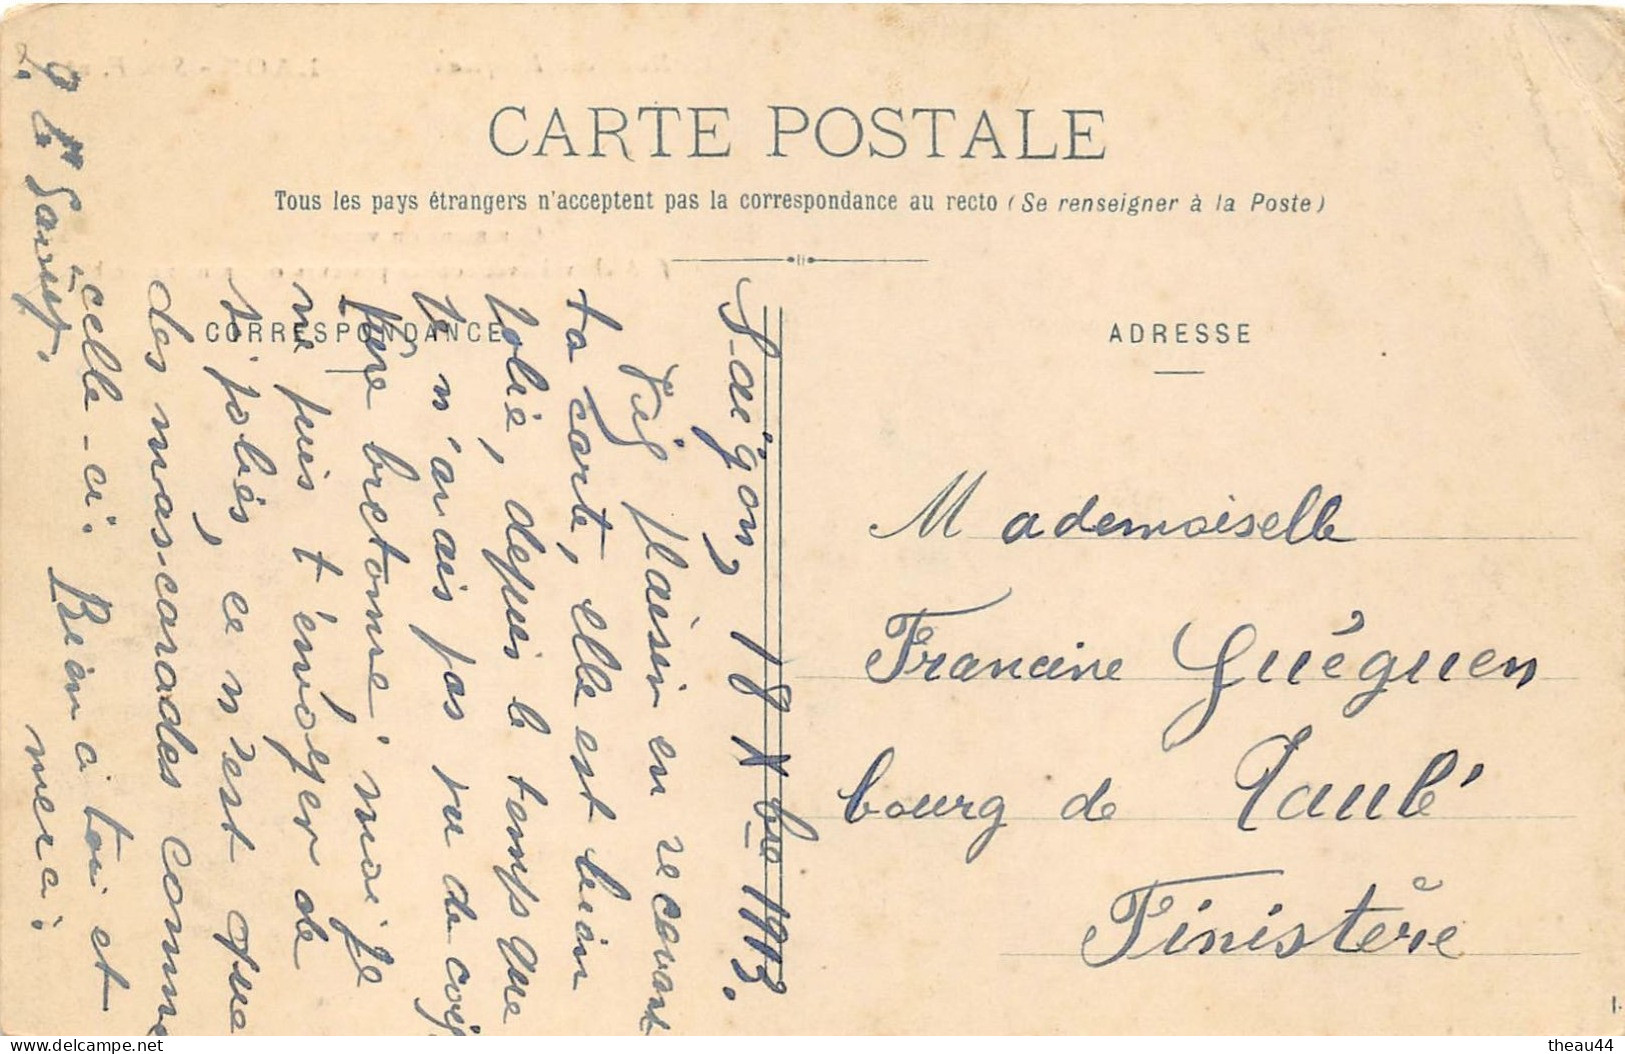 CARTE POSTALE
Tous les pays étrangers n'acceptent pas la correspondance au recto (Se renseigner à la Poste)
CORRESPONDANCE
ADRESSE
Saïgon, 18 Xbre 1913.
plaisir en recevant
ta carte, elle est bien
jolie, depuis le temps que
je n'avais pas vu de
bretonne, moi je
ne puis t'envoyer de
si jolies, ce n'est que
des mascarades comme
celle-ci. Bien à toi et
merci.
Mademoiselle
Francine Guéguen
bourg de Taulé
Finistère
1.
delcampe.net
theau44